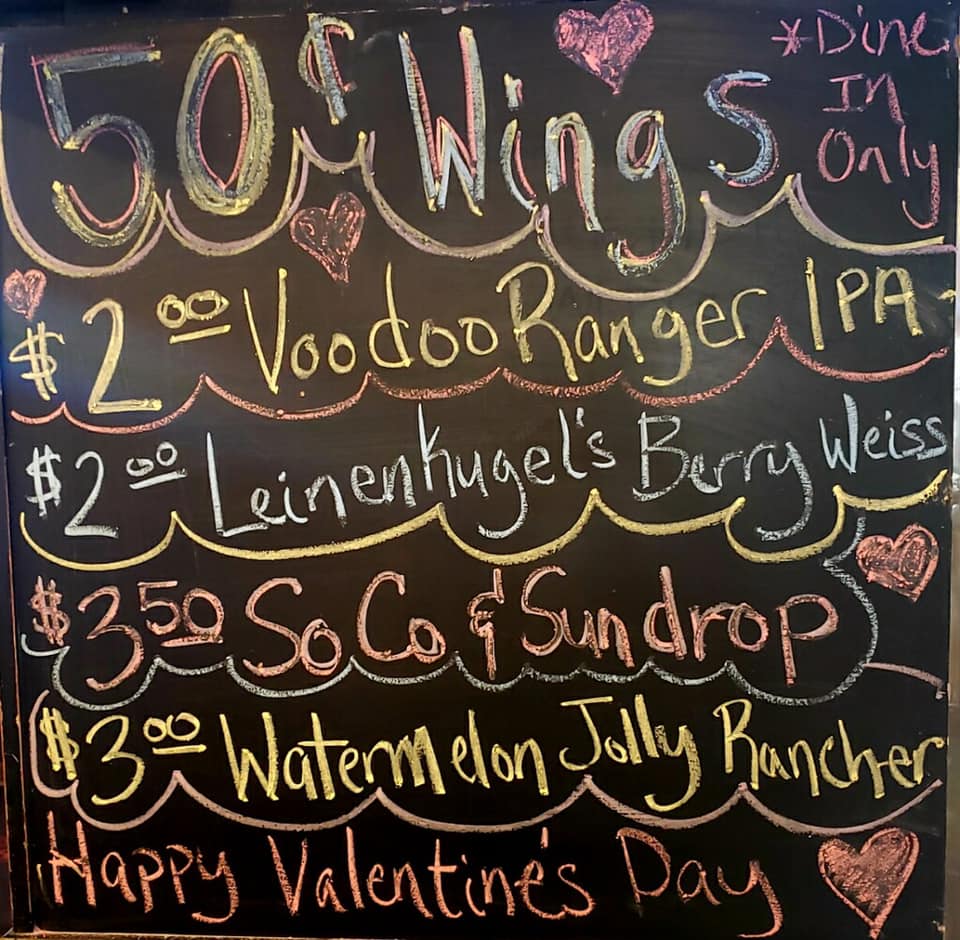 50¢ Wings
*Dine
In
Only
$2.00 Voodoo Ranger IPA
$2.00 Leinenkugel's Berry Weiss
$3.50 SoCo & Sundrop
$3.00 Watermelon Jolly Rancher
Happy Valentine's Day